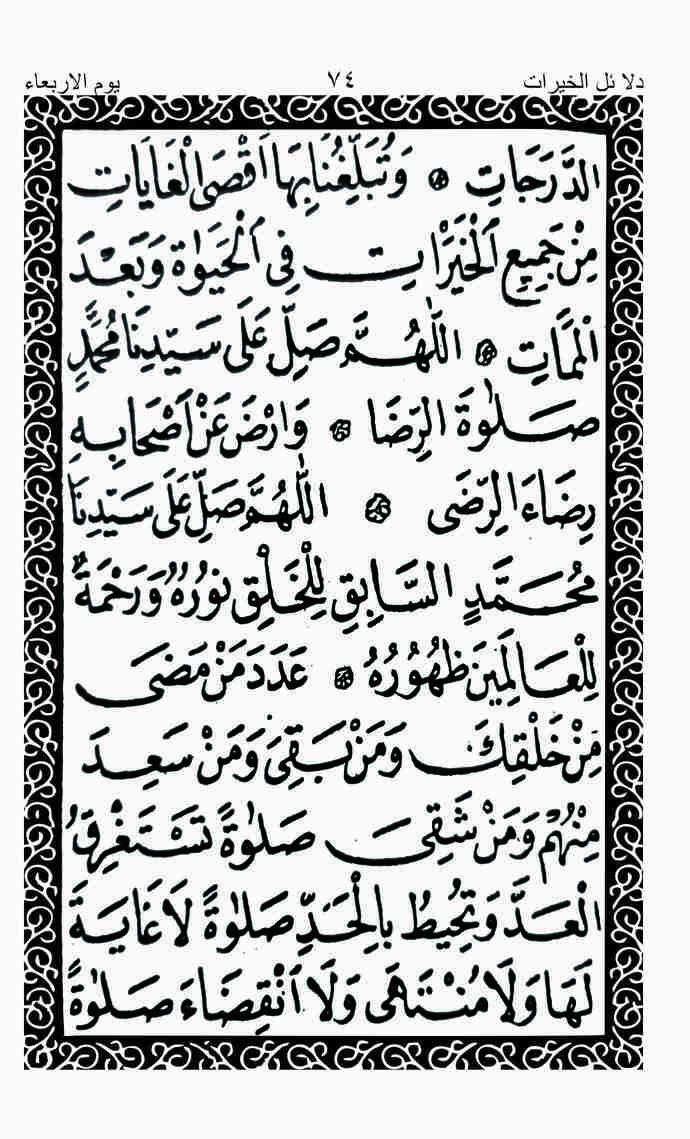 دلائل الخيرات ٧٤ يوم الاربعاء
الدَّرَجَاتِ ۞ وَتُبَلِّغُنَا بِهَا اَقْصَى الْغَايَاتِ
مِنْ جَمِيعِ الْخَيْرَاتِ فِى الْحَيٰوةِ وَبَعْدَ
الْمَمَاتِ ۞ اَللّٰهُمَّ صَلِّ عَلَى سَيِّدِنَا مُحَمَّدٍ
صَلٰوةَ الرِّضَا ۞ وَارْضَ عَنْ اَصْحَابِهِ
رِضَاءَ الرِّضَى ۞ اَللّٰهُمَّ صَلِّ عَلَى سَيِّدِنَا
مُحَمَّدٍ السَّابِقِ لِلْخَلْقِ نُورُهُ وَرَحْمَةٌ
لِلْعَالَمِينَ ظُهُورُهُ ۞ عَدَدَ مَنْ مَضَى
مِنْ خَلْقِكَ وَمَنْ بَقِىَ وَمَنْ سَعِدَ
مِنْهُمْ وَمَنْ شَقِىَ صَلٰوةً تَسْتَغْرِقُ
الْعَدَّ وَتُحِيطُ بِالْحَدِّ صَلٰوةً لَا غَايَةَ
لَهَا وَلَا مُنْتَهَى وَلَا انْقِضَاءَ صَلٰوةً